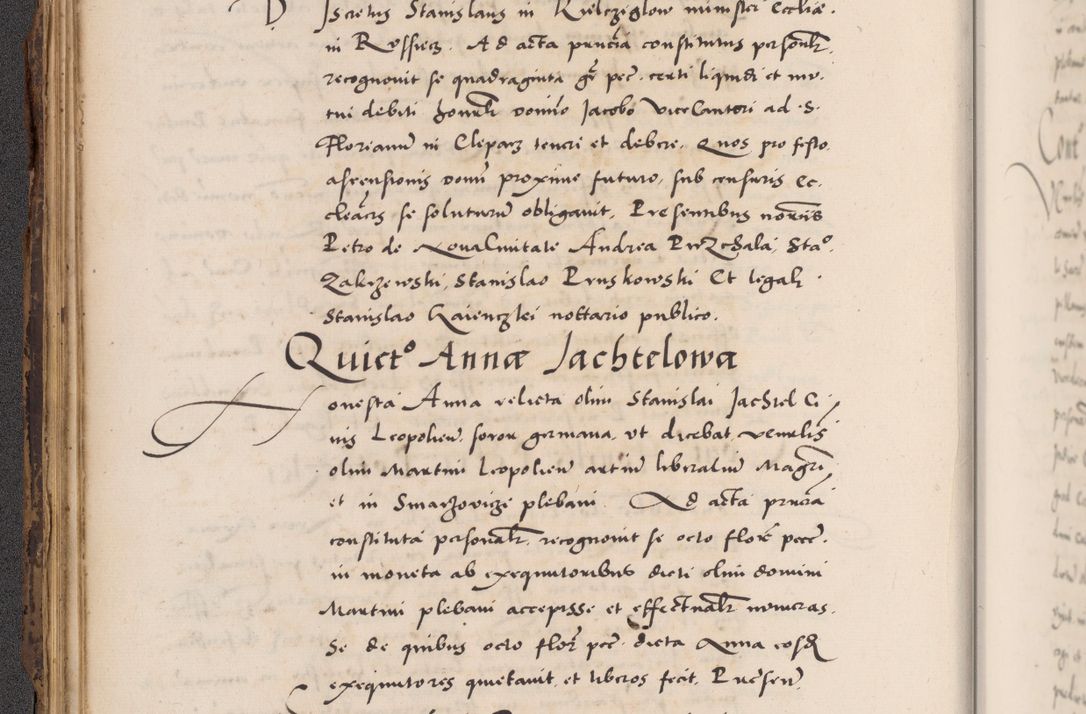 Discretus Stanislaus in Kielczeglow minister Eccliæ.
in Russiecz. Ad acta pnncia constitutus personalr
recognovit se quadraginta gr pec. certi liquidi et mu-
tui debiti honrli domino Jacobo ViceCantori ad S.
Florianu in Cleparz teneri et debere. Quos pro festo
ascensionis domi proxime futuro, sub censuris Ec-
cleacis se soluturu obligavit. Presentibus nonis
Petro de NovaCivitate Andrea Przechala, Stao
Zakrzewski, Stanislao Pruskowski Et legali
Stanislao Kaienczlei nottario publico.
Quieto Annæ Jachtelowa
Honesta Anna relicta olim Stanislai Jachtel Ci-
vis Leopolien, soror germana, ut dicebat, venrlis
olim Martini Leopolien artiu liberaliu Magri
et in Smarzovicze plebani. Ad acta pnncia
constituta personalr, recognovit se octo flore pece.
in moneta ab exequutoribus dicti olim domini
Martini plebani accepisse et effectualr numeras-
se de quibus octo flor pec. dicta Anna eosd
exequutores quietavit et liberos fecit. Presen